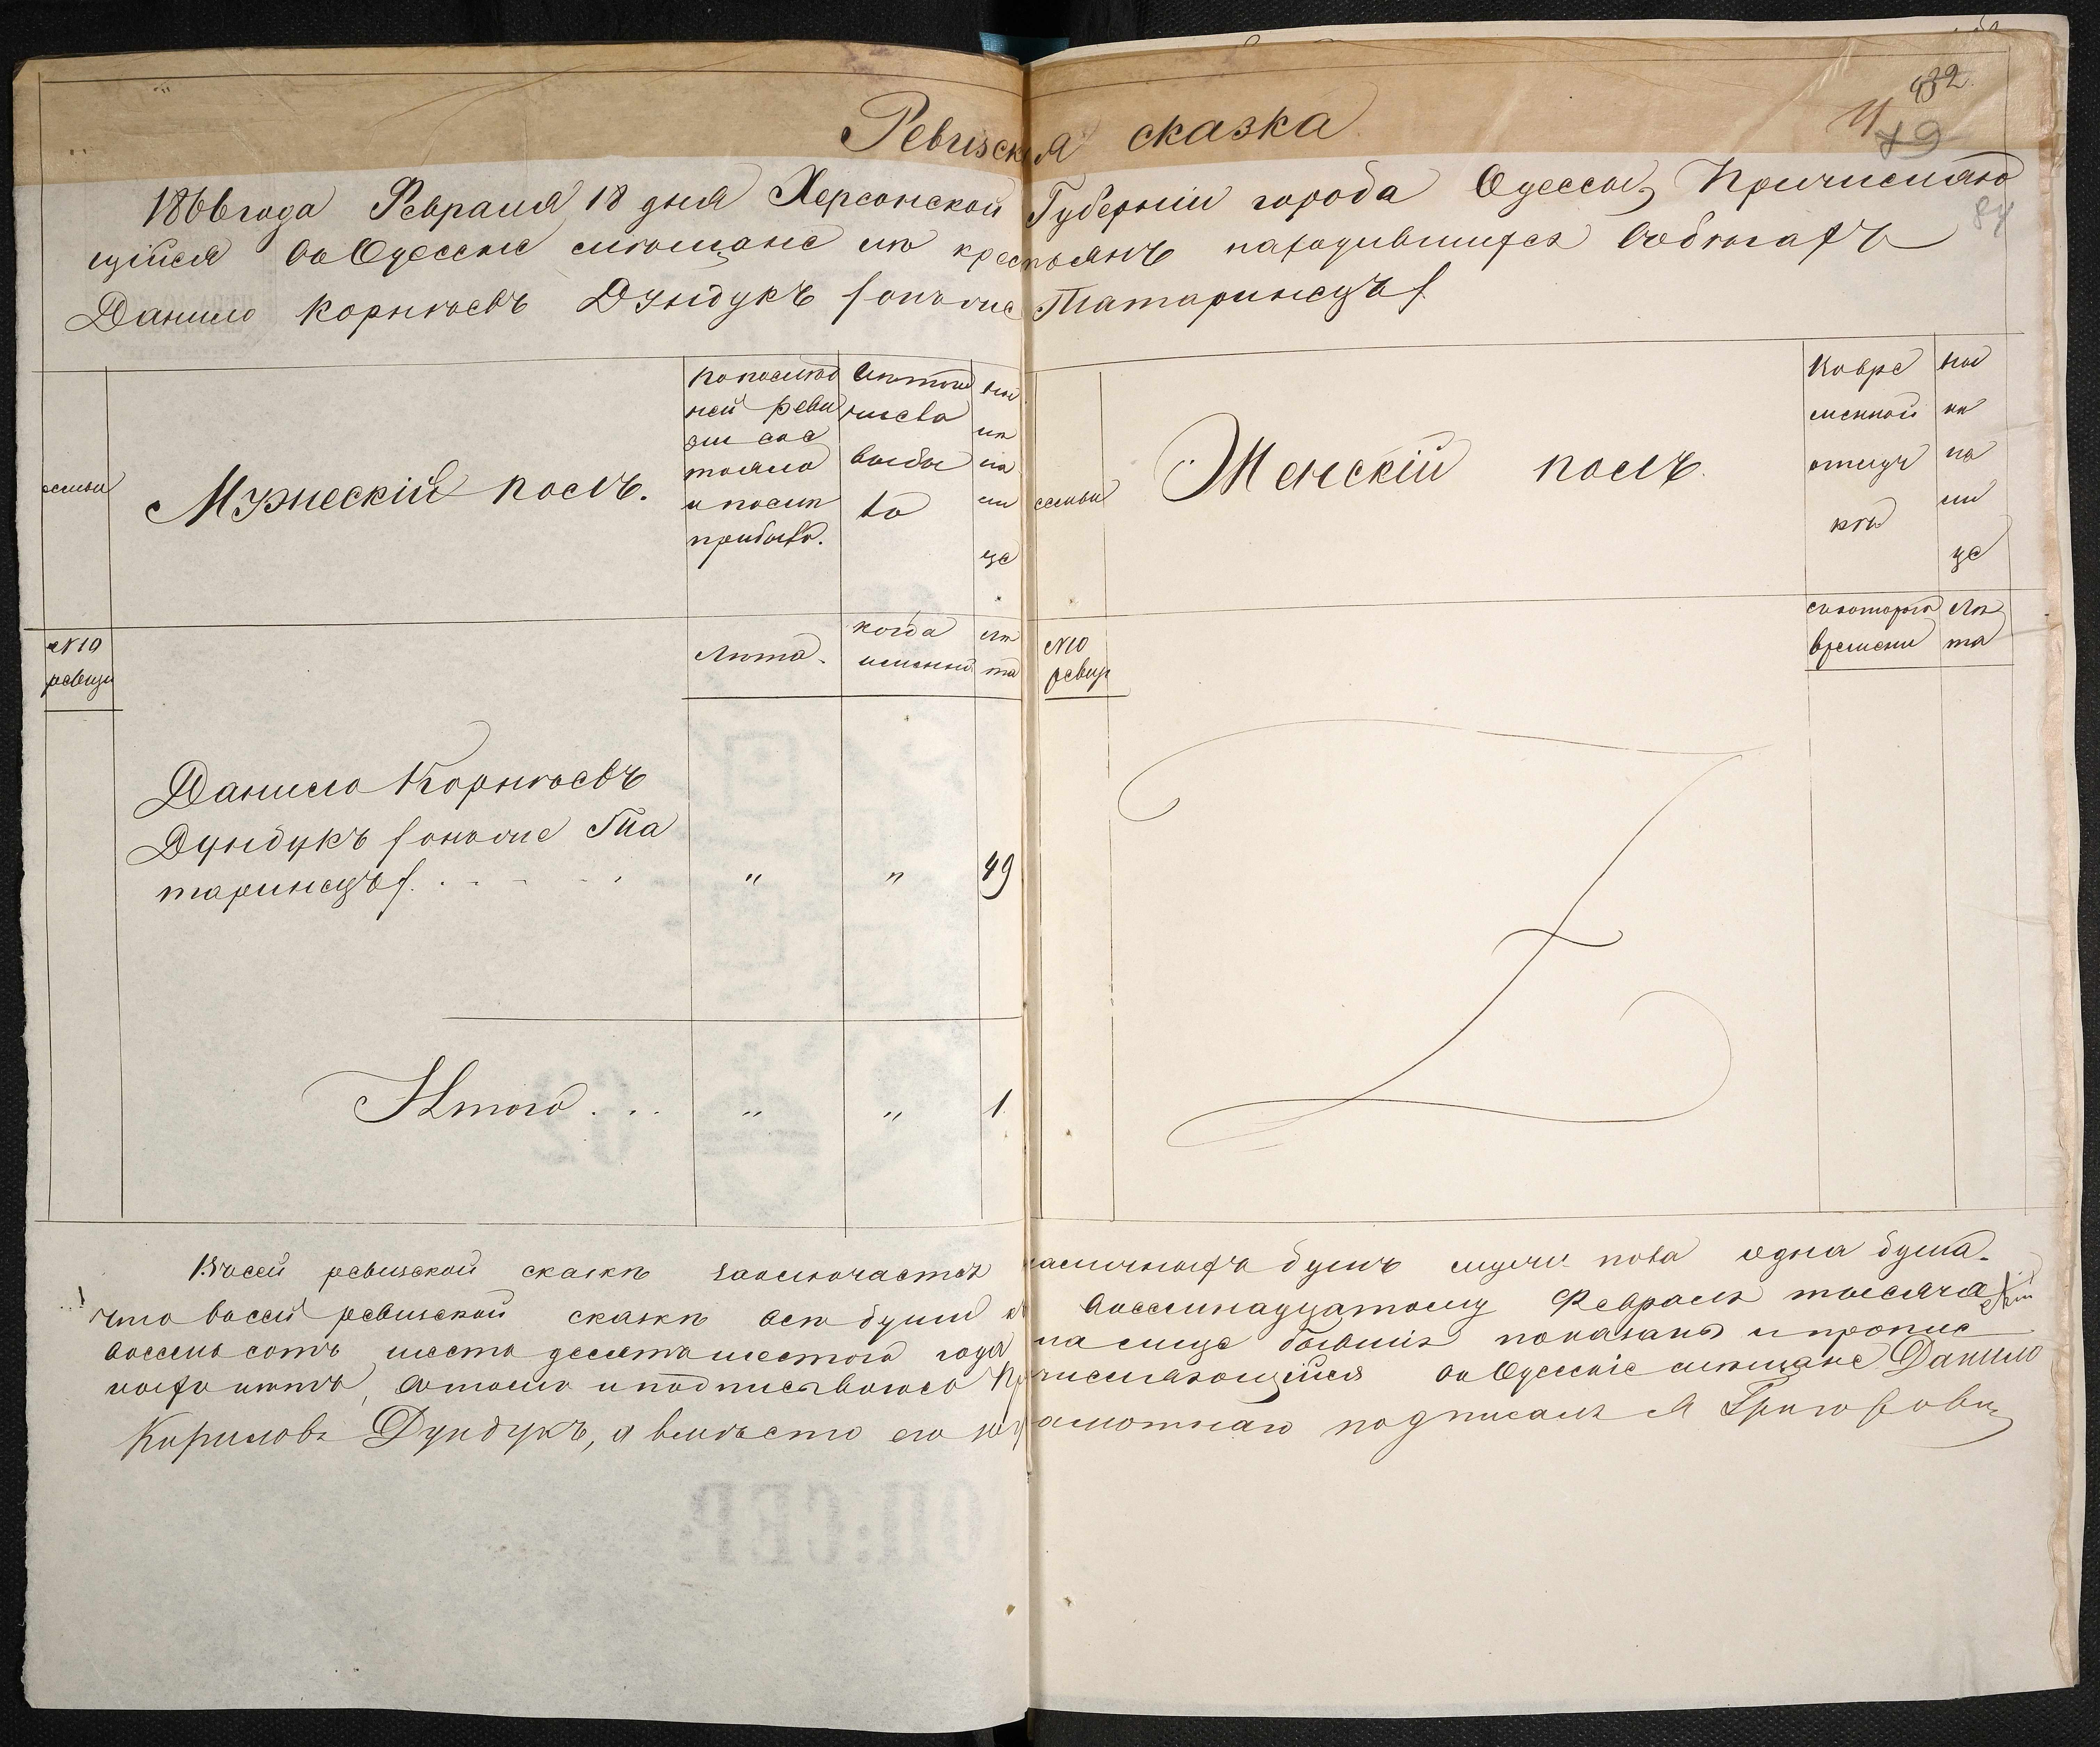 432.
79
84
Ревизская сказка
1866 года Февраля 18 дня Херсонской Губерніи города Одессы, Причисляю
щійся во Одесскіе мѣщане изъ крестьянъ находившихся вобѣгахъ
Данило Корнѣевъ Дундукъ (онъ же Татаринецъ)
семьи
Мужескій полъ.
Попослѣд
ней реви
зіи сос
тояло
и послѣ
прибыло.
Изтого
числа
выбы
ло
Ны
нѣ
на
ли
це
семьи
Женскій полъ.
Ковре
менной
отлуч
кѣ
Ны
нѣ
на
ли
це
№10
ревизи
Лѣта.
когда
именно.
лѣ
та
№10
ревиз
скотораго
времени
Лѣ
та
Данило Корнѣевъ
Дундукъ (онъ же Та
таринецъ) . . . . . " " 49
Итого . . . " " 1
Всей ревизской сказкѣ заключается наличныхъ душъ мужеска пола одна душа.
что всей ревизской сказкѣ всѣ души къ восемнадцатому Февраля тысяча
восемь сотъ шесть десятъ шестого года на лице бывшіе показаны и пропис
ныхъ нѣтъ, втомъ и подписываюсь Причисляющійся во Одесскіе мѣщане Данило
Кириловъ Дундукъ, а вмѣсто его неграмотнаго подписалъ я